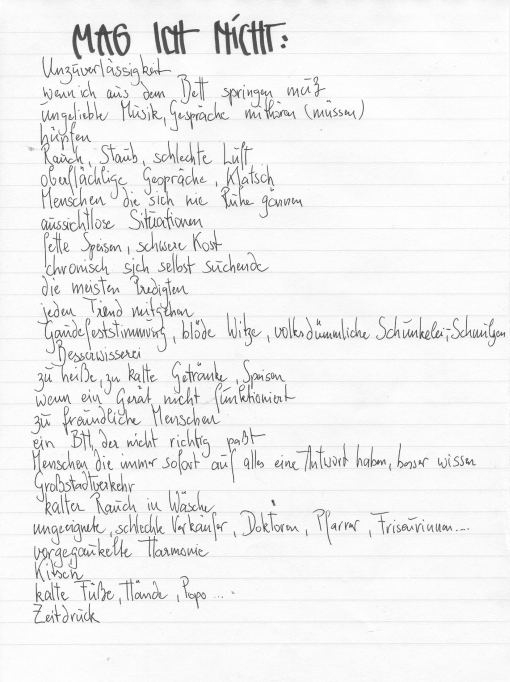 MAG ICH NICHT:
Unzuverlässigkeit
wenn ich aus dem Bett springen muß
ungeliebte Musik, Gespräche mithören (müssen)
hüpfen
Rauch, Staub, schlechte Luft
oberflächlige Gespräche, Klatsch
Menschen die sich nie Ruhe gönnen
aussichtlose Situationen
fette Speisen, schwere Kost
chronisch sich selbst suchende
die meisten Predigten
jeden Trend mitgehen
Gaudefeststimmung, blöde Witze, volksdümmliche Schunkelei,-Schnulzen
Besserwisserei
zu heiße, zu kalte Getränke, Speisen
wenn ein Gerät nicht funktioniert
zu freundliche Menschen
ein BH, der nicht richtig paßt
Menschen die immer sofort auf alles eine Antwort haben, besser wissen
Großstadtverkehr
kalter Rauch in Wäsche
ungeeignete, schlechte Verkäufer, Doktoren, Pfarrer, Friseurinnen....
vorgegaukelte Harmonie
Kitsch
kalte Füße, Hände, Popo ...
Zeitdruck